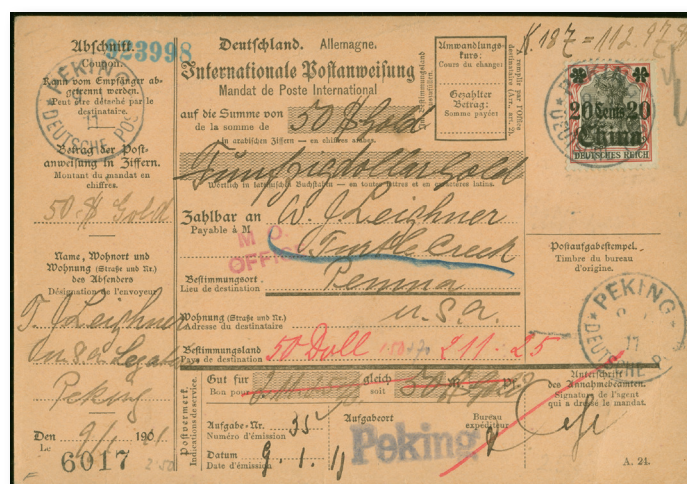 Abschnitt.
923998
Coupon.
Kann vom Empfänger ab-
getrennt werden.
Peut être détaché par le
destinataire.
PEKING
DEUTSCHE POST
Betrag der Post-
anweisung in Ziffern.
Montant du mandat en
chiffres.
50 $ Gold
Name, Wohnort und
Wohnung (Straße und Nr.)
des Absenders
Désignation de l'envoyeur
T. J. Leishner
U.S.A. Legation
Peking
Den 9/1 1911
Le
6017
2.50
Deutschland. Allemagne.
Internationale Postanweisung
Mandat de Poste International
auf die Summe von
de la somme de
50 $ Gold
In arabischen Ziffern — en chiffres arabes.
Fünfzigdollar Gold
Wörtlich in lateinischen Buchstaben — en toutes lettres et en caractères latins.
Zahlbar an
Payable à M
W. J. Leishner
M. O.
OFFICE
Turtle Creek
Bestimmungsort.
Lieu de destination
Penna
U.S.A.
Wohnung (Straße und Nr.)
Adresse du destinataire
Bestimmungsland
Pays de destination
50 Doll 211.25
Gut für
Bon pour
gleich
soit
Postvermerk.
Indications de service.
Aufgabe-Nr.
Numéro d'émission
35
Aufgabeort
Bureau
expéditeur
Peking
Datum
Date d'émission
9. 1. 11
Umwandlungs-
kurs:
Cours du change:
Gezahlter
Betrag:
Somme payée:
K. 187 = 112.97
PEKING
20 Cents 20
China
DEUTSCHES REICH
Postaufgabestempel.
Timbre du bureau
d'origine.
PEKING
DEUTSCHE POST
11
Unterschrift
des Annahmebeamten.
Signature de l'agent
qui a dressé le mandat.
A. 24.